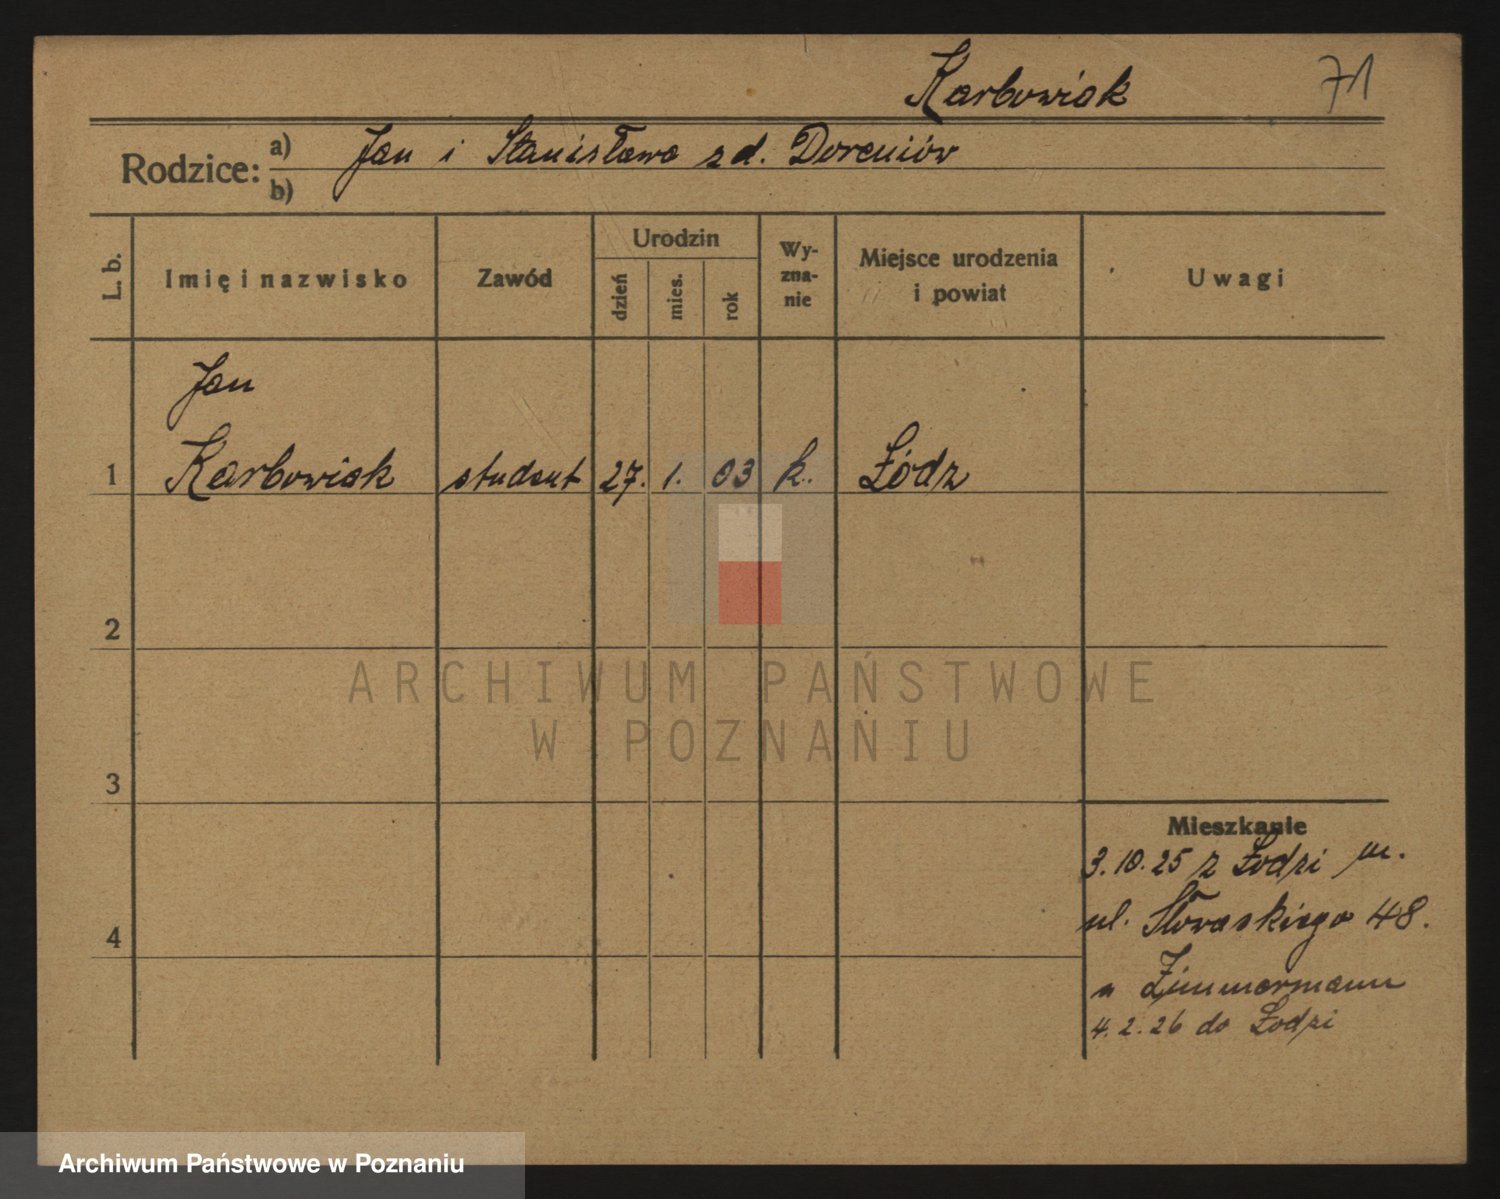 Karbowiak 71
Rodzice: a) Jan i Stanisława z d. Doreniów
b)
L. b. Imię i nazwisko Zawód Urodzin dzień mies. rok Wyznanie Miejsce urodzenia i powiat Uwagi
Jan
1 Karbowiak student 27. 1. 03 k. Łódz
2
3
4
Mieszkanie
3.10.25 z Łodzi m.
ul. Słowackiego 48.
u Zimmermann
4.2.26 do Łodzi
ARCHIWUM PAŃSTWOWE
W POZNANIU
Archiwum Państwowe w Poznaniu